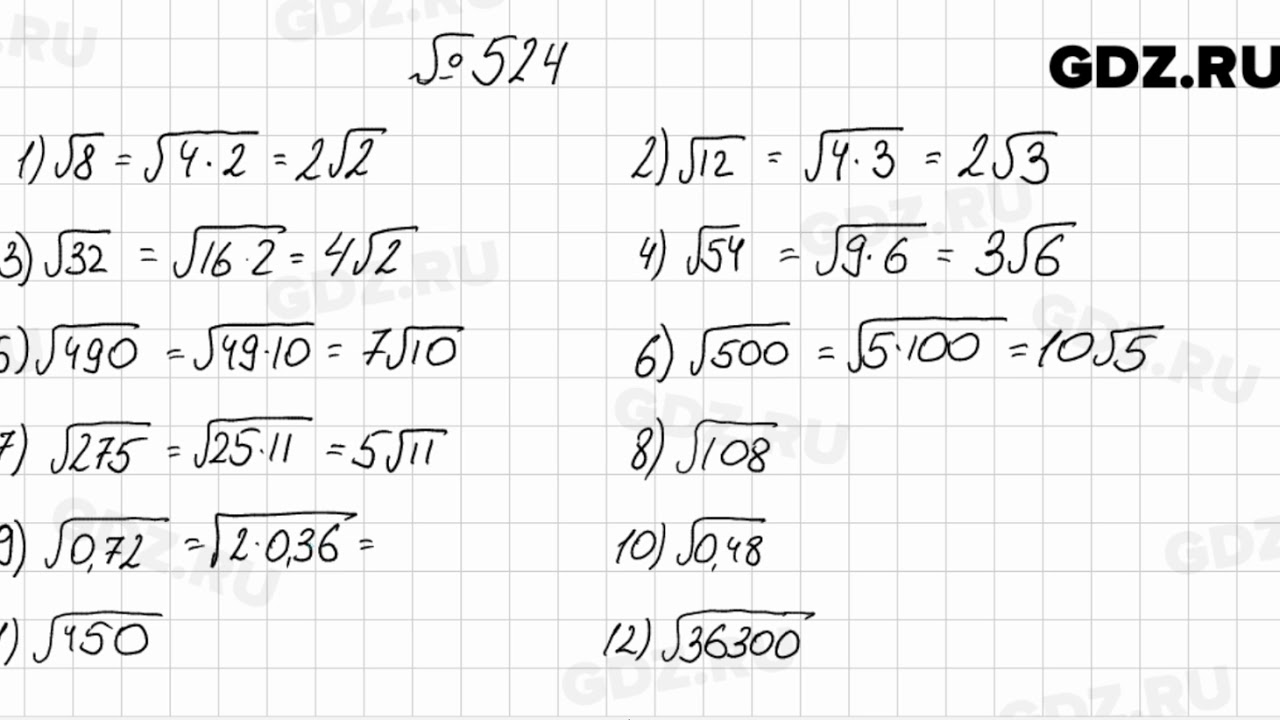 № 524
GDZ.RU
1) √8 = √4·2 = 2√2
2) √12 = √4·3 = 2√3
3) √32 = √16·2 = 4√2
4) √54 = √9·6 = 3√6
5) √490 = √49·10 = 7√10
6) √500 = √5·100 = 10√5
7) √275 = √25·11 = 5√11
8) √108
9) √0,72 = √2·0,36 =
10) √0,48
1) √450
12) √36300